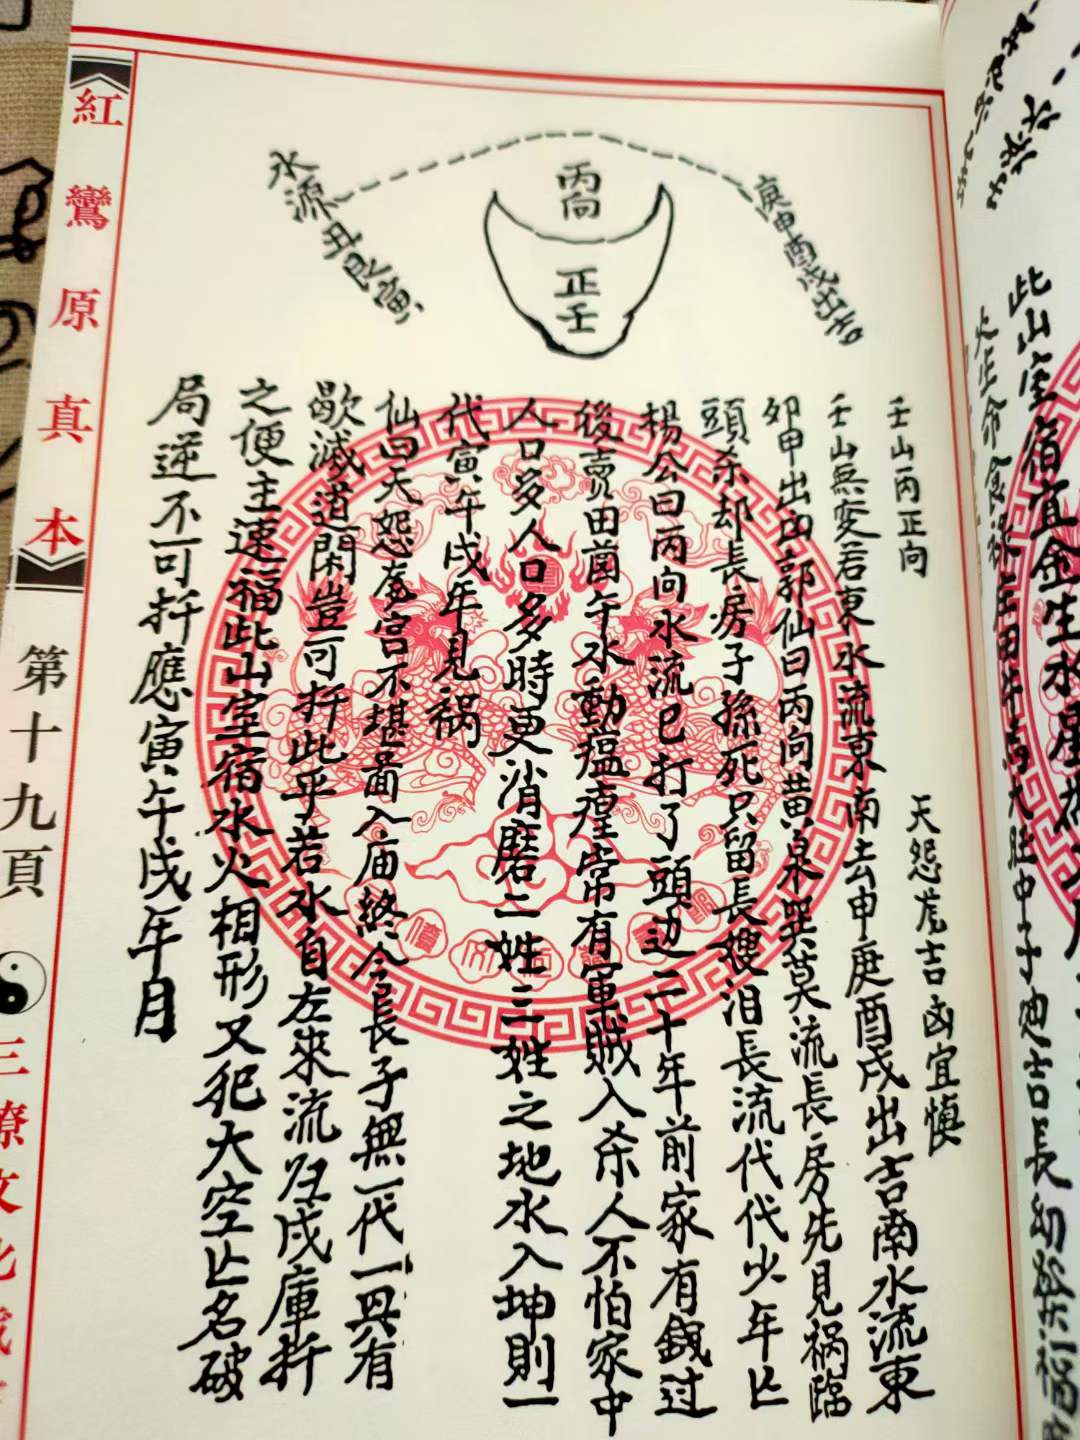 紅鸞原真本
第十九頁
三僚文化
水源丑艮寅
丙向
正壬
庚申酉戌出吉
壬山丙正向
天怨龙吉凶宜慎
壬山無变君東水流東南去申庚酉戌出吉南水流東
卯甲出凶郭仙曰丙向黄泉巽莫流長房先見祸臨
頭杀却長房子孫死只留長嫂泪長流代代少年亡
楊公曰丙向水流已打了頭边二十年前家有錢过
後賣田莊午水動瘟瘟常有軍賊入杀人不怕家中
人口多人口多時更消磨二姓三姓之地水入坤則一
代寅午戌年見祸
仙曰天怨宫不堪入庙終令長子無一代一具有
歇滅道閑豈可扦此乎若水自左來流归戌庫扦
之便主速福此山室宿水火相形又犯大空亡名破
局逆不可扦應寅午戌年月
此山室宿宜金生水星
火生命食禄庄田牛馬大旺申子地吉長幼